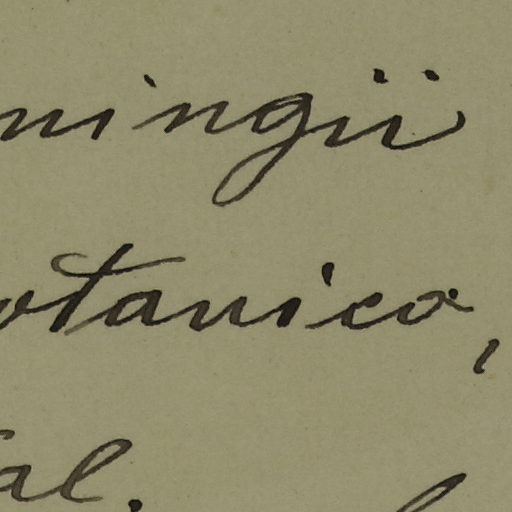 ningii
otanico,
al.